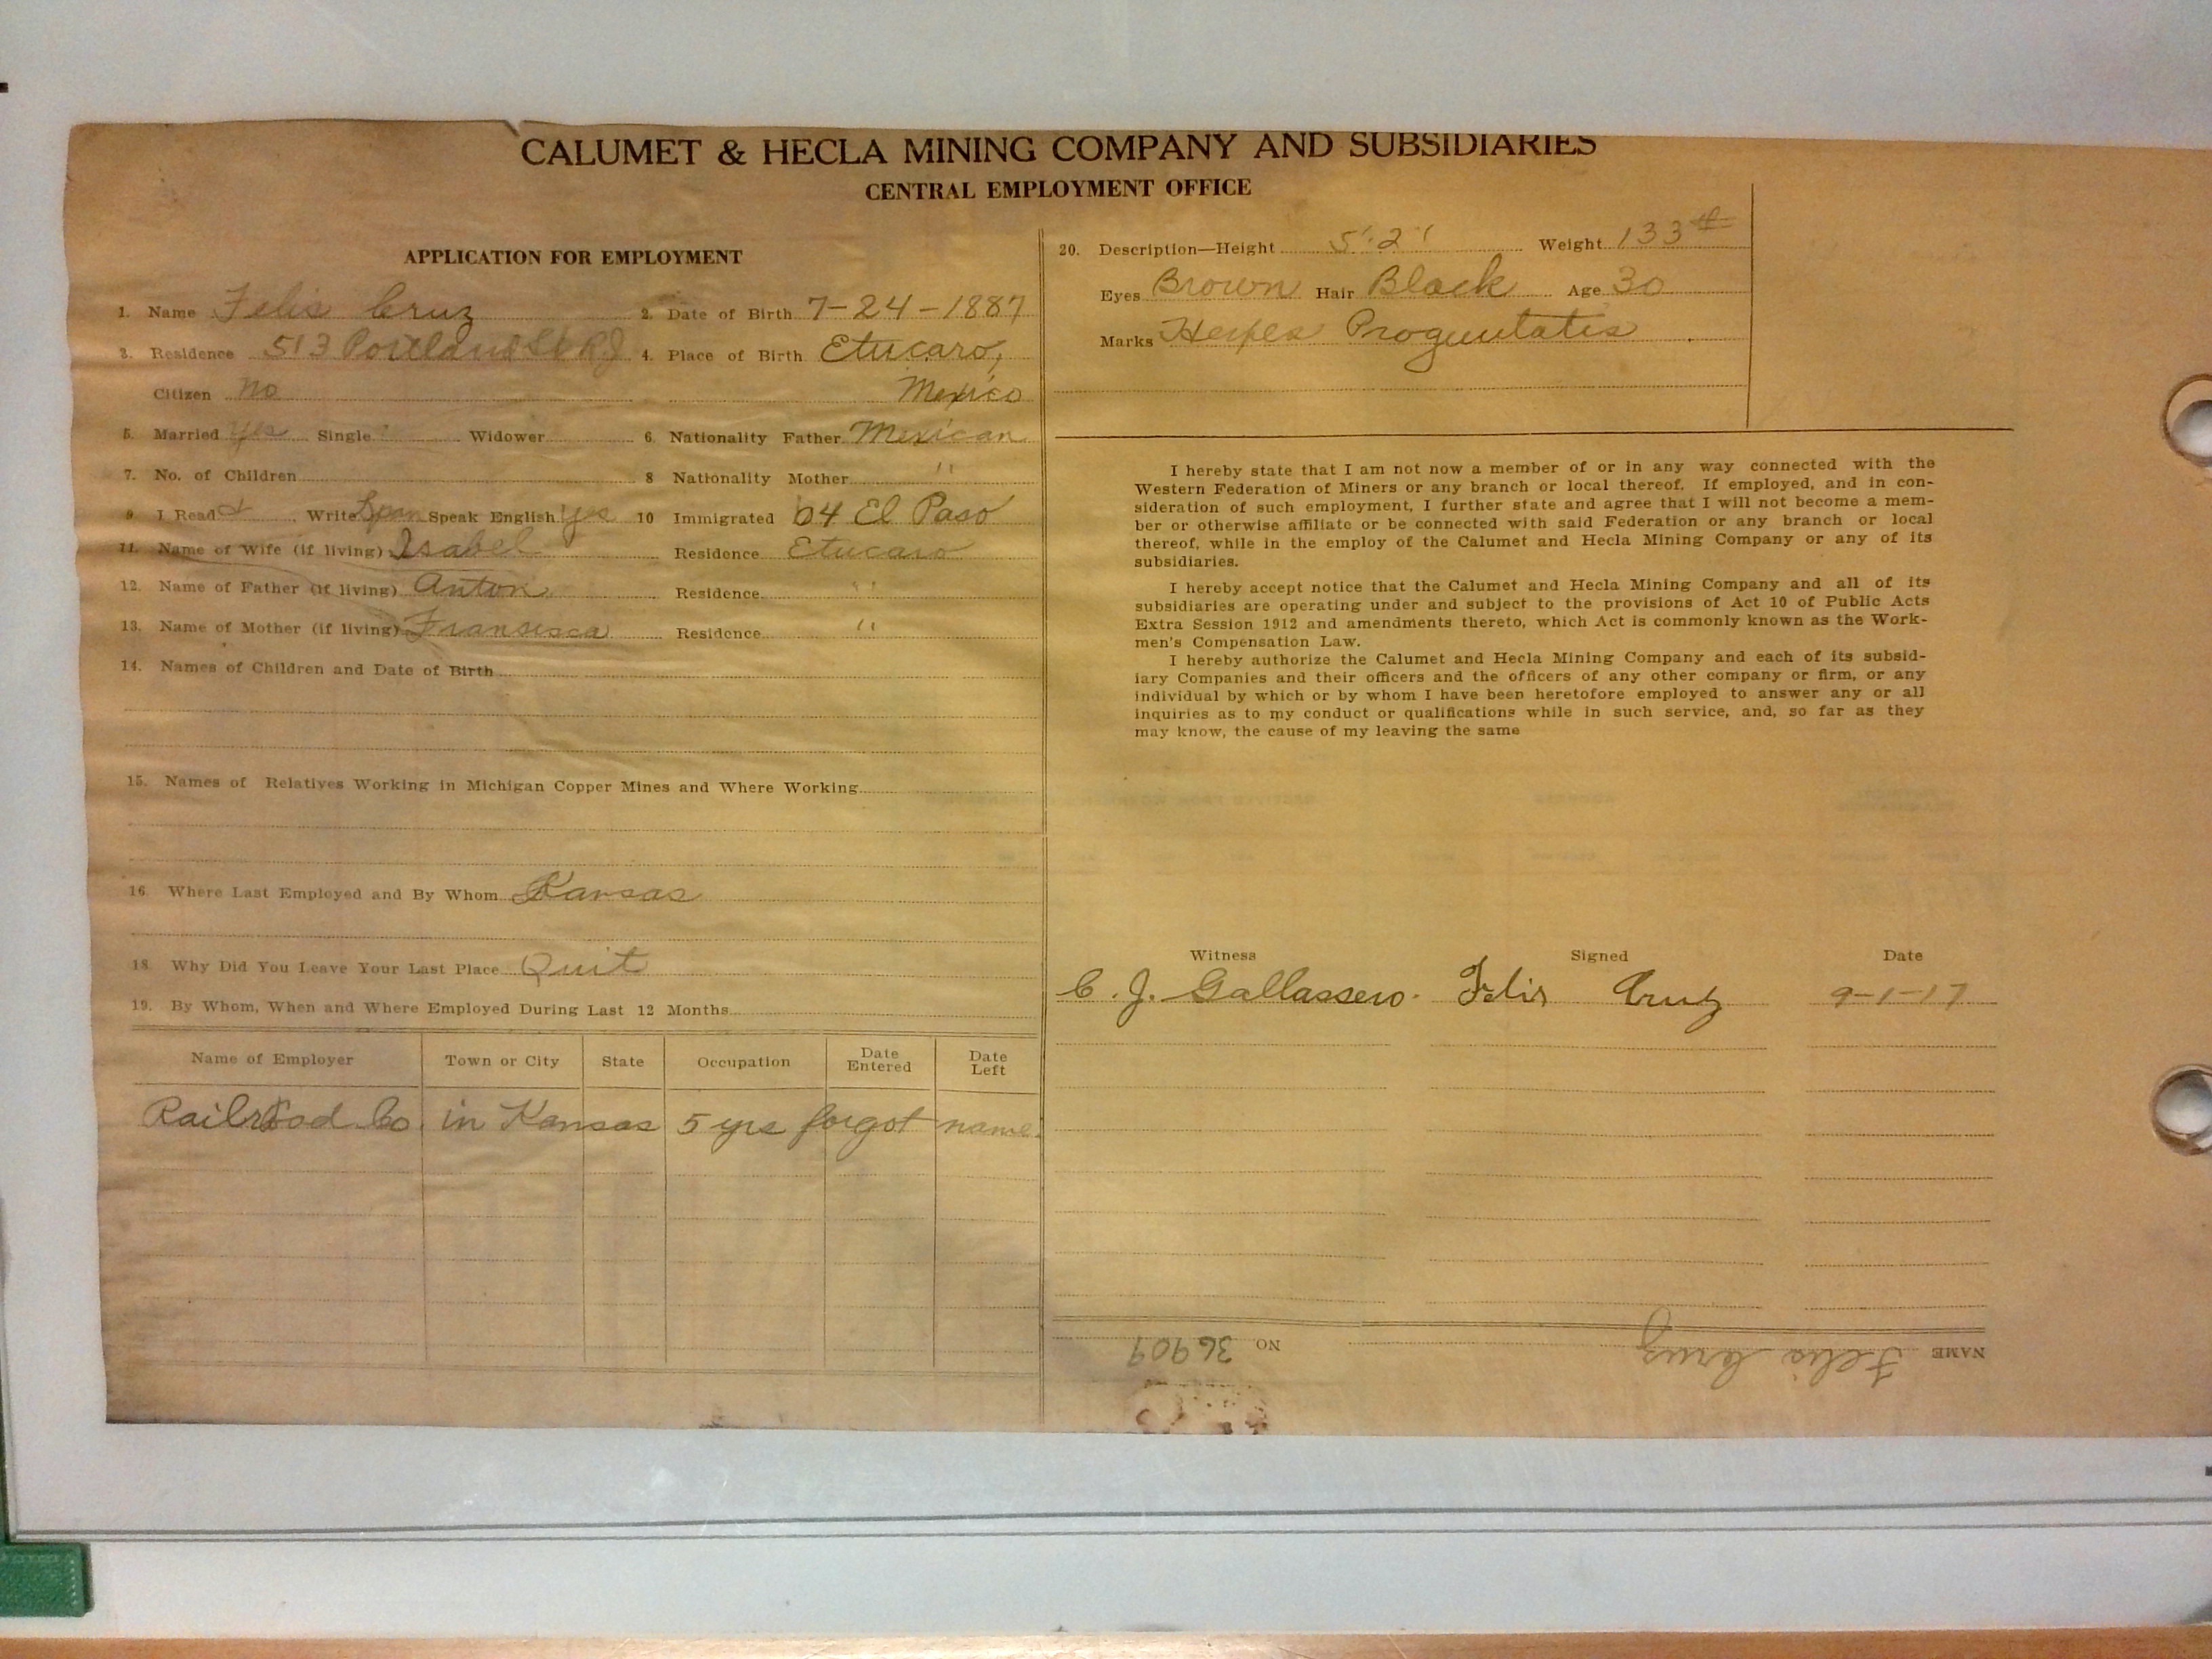 CALUMET & HECLA MINING COMPANY AND SUBSIDIARIES
CENTRAL EMPLOYMENT OFFICE
APPLICATION FOR EMPLOYMENT
1. Name Felis Cruz 2. Date of Birth 7-24-1887
3. Residence 513 Portland St 4. Place of Birth Etucaro,
Citizen no Mexico
5. Married yes Single Widower 6. Nationality Father Mexican
7. No. of Children 8 Nationality Mother "
9. I Read & Write Span Speak English yes 10 Immigrated 04 El Paso
11. Name of Wife (if living) Isabel Residence Etucaro
12. Name of Father (if living) Anton Residence "
13. Name of Mother (if living) Fransisca Residence "
14. Names of Children and Date of Birth
15. Names of Relatives Working in Michigan Copper Mines and Where Working
16. Where Last Employed and By Whom Kansas
18. Why Did You Leave Your Last Place Quit
19. By Whom, When and Where Employed During Last 12 Months
Name of Employer Town or City State Occupation Date Entered Date Left
Railroad Co in Kansas 5 yrs forgot name.
20. Description—Height 5'.2" Weight 133#
Eyes Brown Hair Black Age 30
Marks Herpes
I hereby state that I am not now a member of or in any way connected with the
Western Federation of Miners or any branch or local thereof. If employed, and in con-
sideration of such employment, I further state and agree that I will not become a mem-
ber or otherwise affiliate or be connected with said Federation or any branch or local
thereof, while in the employ of the Calumet and Hecla Mining Company or any of its
subsidiaries.
I hereby accept notice that the Calumet and Hecla Mining Company and all of its
subsidiaries are operating under and subject to the provisions of Act 10 of Public Acts
Extra Session 1912 and amendments thereto, which Act is commonly known as the Work-
men's Compensation Law.
I hereby authorize the Calumet and Hecla Mining Company and each of its subsid-
iary Companies and their officers and the officers of any other company or firm, or any
individual by which or by whom I have been heretofore employed to answer any or all
inquiries as to my conduct or qualifications while in such service, and, so far as they
may know, the cause of my leaving the same
Witness Signed Date
C. J. Gallassero. Felis Cruz 9-1-17
NAME Felis Cruz NO 36909